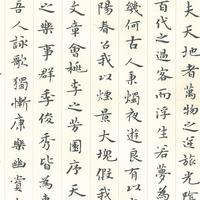 夫天地者萬物之逆旅光陰
百代之過客而浮生若夢為
幾何古人秉燭夜遊良有以
陽春召我以煙景大塊假我
文章會桃李之芳園序天
之樂事群季俊秀皆為
吾人詠歌獨慚康樂幽賞